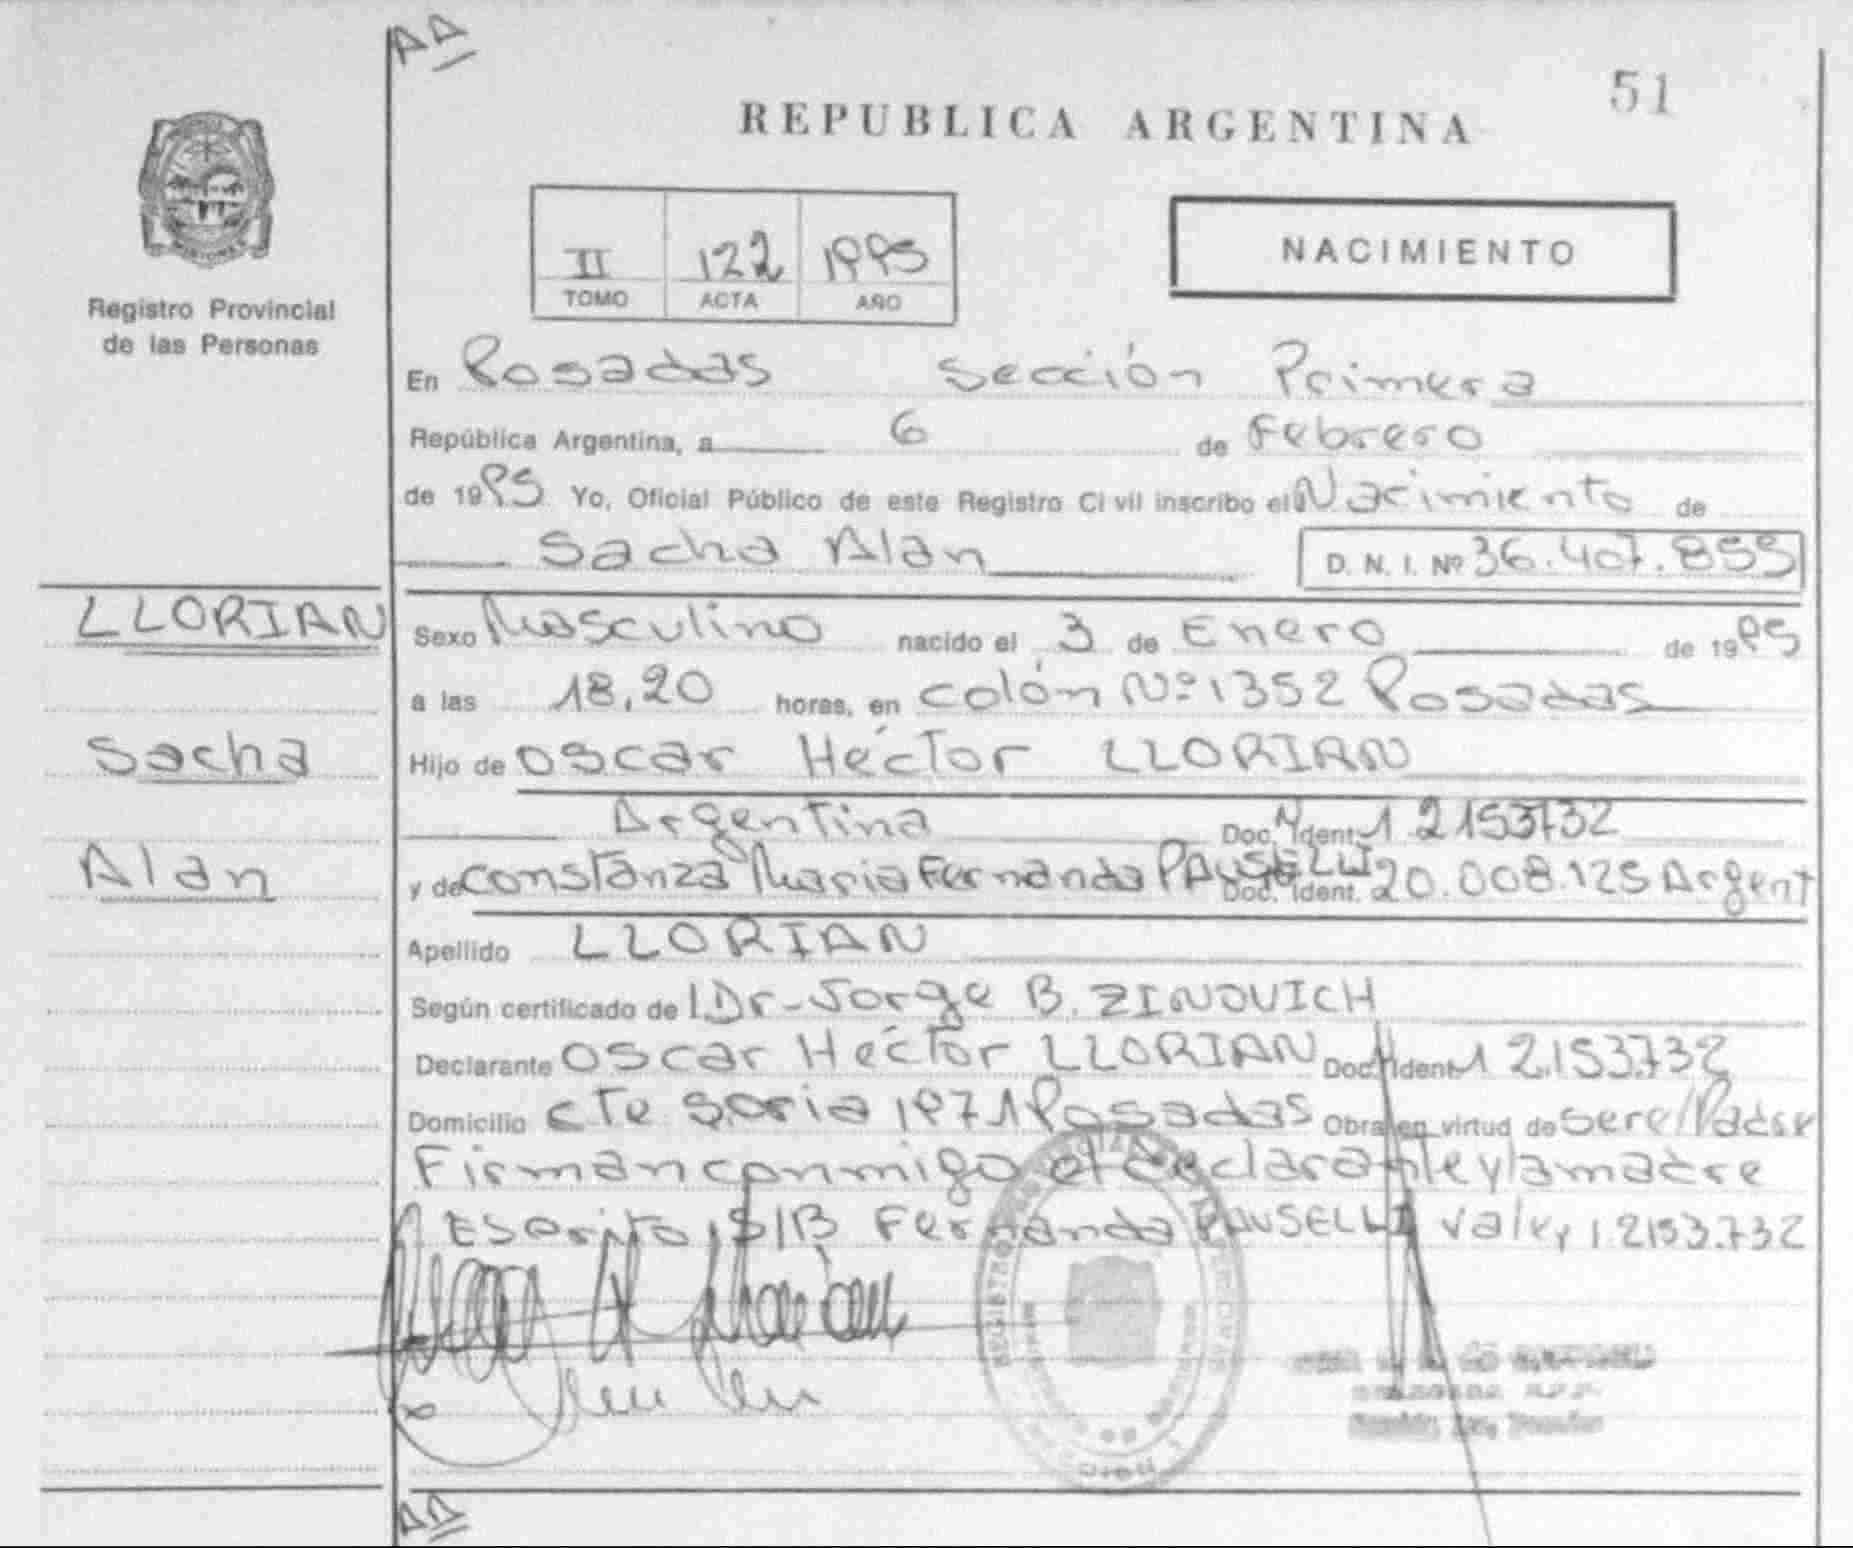 AA
51
REPUBLICA ARGENTINA
Registro Provincial
de las Personas
II 122 1995
TOMO ACTA AÑO
NACIMIENTO
En Posadas Sección Primera
República Argentina, a 6 de Febrero
de 1995 Yo, Oficial Público de este Registro Civil inscribo el Nacimiento de
Sacha Alan D. N. I. Nº 36.407.855
LLORIAN
Sacha
Alan
Sexo Masculino nacido el 3 de Enero de 1995
a las 18,20 horas, en Colón Nº 1352 Posadas
Hijo de Oscar Héctor LLORIAN
Argentina Doc. Ident. 12153732
y de Constanza Maria Fernanda PAUSELLI Doc. Ident. 20.008.125 Argent
Apellido LLORIAN
Según certificado de Dr-Jorge B. ZINOVICH
Declarante Oscar Héctor LLORIAN Doc. Ident 12.153.732
Domicilio Cte Soria 1971 Posadas Obra en virtud de ser el Padre
Firman conmigo el declarante y la madre
Escrito, S/B Fernanda PAUSELLI vale, 12153.732
AA